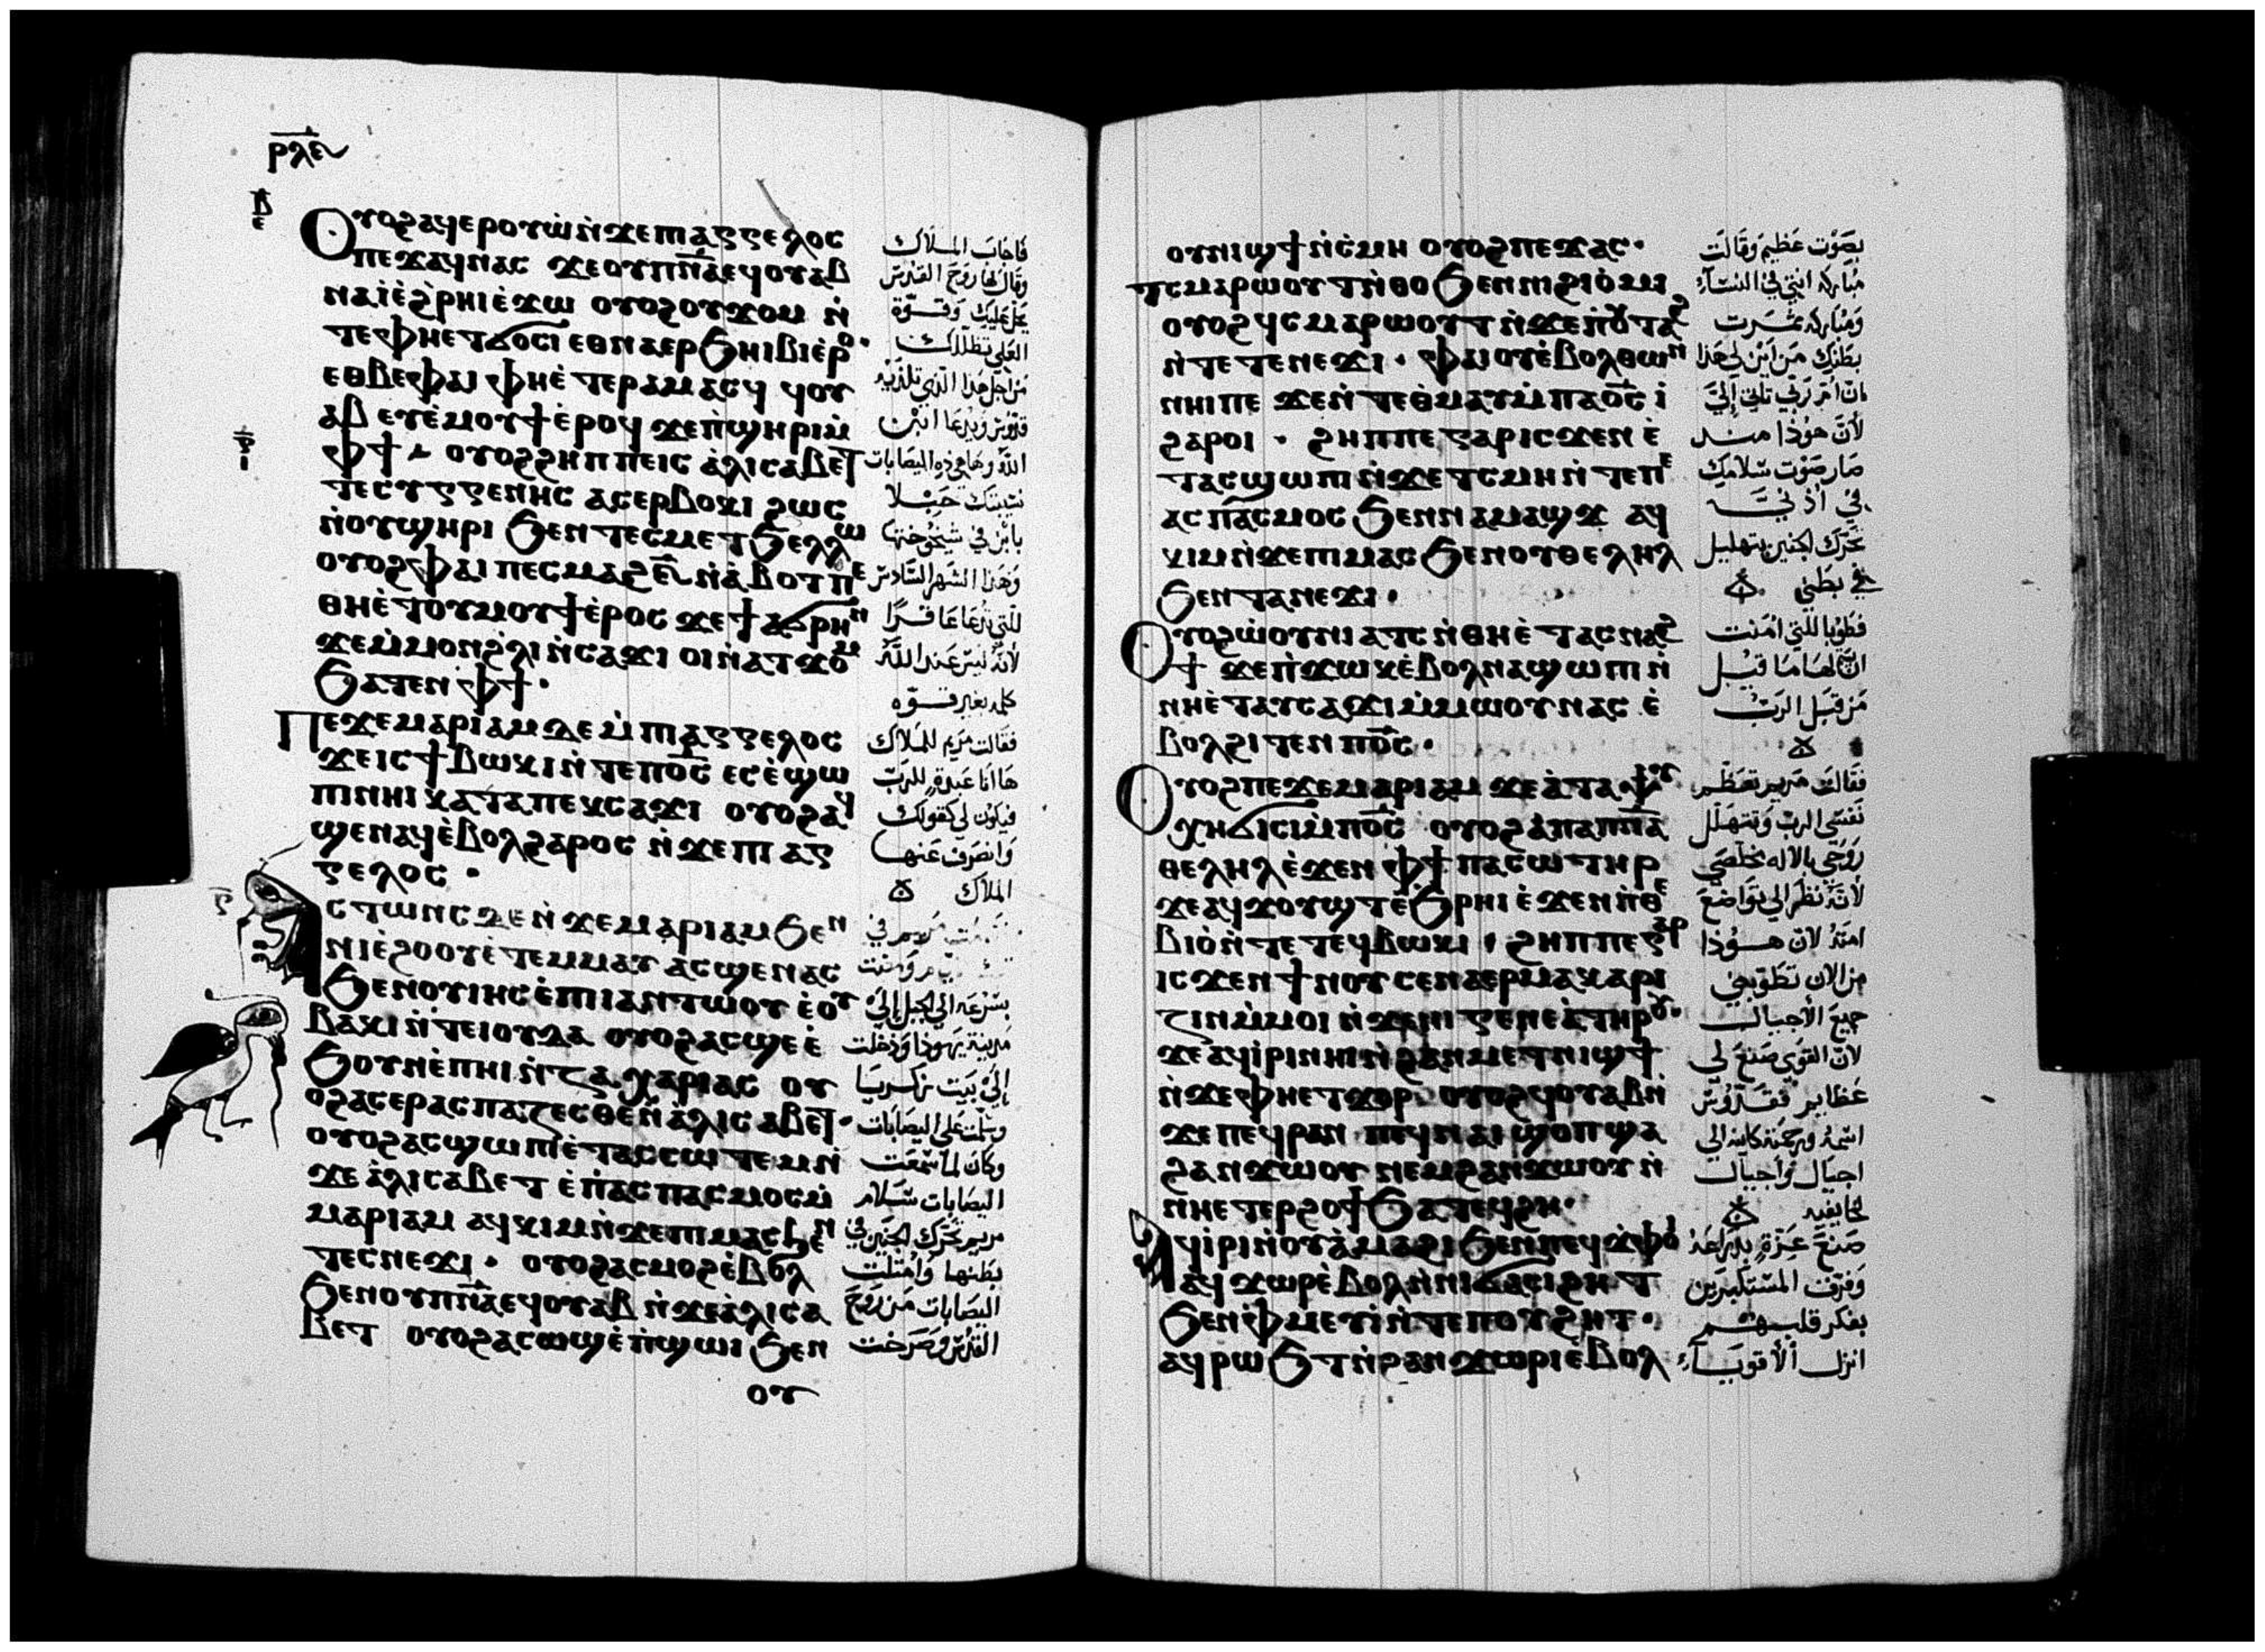 ⲣⲗⲉ
ⲟⲩⲟϩ ⲁϥⲉⲣⲟⲩⲱ̀ ⲛ̀ϫⲉⲡⲓⲁⲅⲅⲉⲗⲟⲥ
ⲡⲉϫⲁϥ ⲛⲁⲥ ϫⲉ ⲟⲩⲡ̅ⲛ̅ⲁ̅ ⲉϥⲟⲩⲁⲃ
ⲛⲁⲓ̀ ⲉ̀ϩ̀ⲣⲏⲓ ⲉ̀ϫⲱ ⲟⲩⲟϩ ⲟⲩϫⲟⲙ ⲛ̀
ⲧⲉ ⲫⲏⲉⲧϭⲟⲥⲓ ⲉⲑⲛⲁⲉⲣϧⲏⲓⲃⲓ ⲉ̀ⲣⲟ·
ⲉⲑⲃⲉⲫⲁⲓ ⲫⲏⲉ̀ⲧⲉⲣⲁⲙⲁⲥϥ ϥⲟⲩ
ⲁⲃ ⲉⲩⲉ̀ⲙⲟⲩϯ ⲉ̀ⲣⲟϥ ϫⲉ ⲡ̀ϣⲏⲣⲓ ⲙ̀
ⲫϯ ⲟⲩⲟϩ ϩⲏⲡⲡⲉ ⲓⲥ ⲁ̀ⲗⲓⲥⲁⲃⲉⲧ
ⲧⲉⲥⲩⲅⲅⲉⲛⲏⲥ ⲁⲥⲉⲣⲃⲟⲕⲓ ϩⲱⲥ
ⲛ̀ⲟⲩϣⲏⲣⲓ ϧⲉⲛ ⲧⲉⲥⲙⲉⲧϧⲉⲗⲗⲱ
ⲟⲩⲟϩ ⲫⲁⲓ ⲡⲉⲥⲙⲁϩ ⲋ̅ ⲛ̀ⲁ̀ⲃⲟⲧ ⲡⲉ
ⲑⲏⲉ̀ⲧⲟⲩⲙⲟⲩϯ ⲉ̀ⲣⲟⲥ ϫⲉ ϯⲁϭⲣⲏⲛ
ϫⲉ ⲙ̀ⲙⲟⲛ ϩ̀ⲗⲓ ⲛ̀ⲥⲁϫⲓ ⲟⲓ ⲛ̀ⲁⲧϫⲟⲙ
ϧⲁⲧⲉⲛ ⲫϯ·
ⲡⲉϫⲉ ⲙⲁⲣⲓⲁⲙ ⲇⲉ ⲙ̀ⲡⲓⲁⲅⲅⲉⲗⲟⲥ
ϫⲉ ⲓⲥ ϯⲃⲱⲕⲓ ⲛ̀ⲧⲉ ⲡⲟ̅ⲥ̅ ⲉⲥⲉ̀ϣⲱ
ⲡⲓ ⲛⲏⲓ ⲕⲁⲧⲁ ⲡⲉⲕⲥⲁϫⲓ ⲟⲩⲟϩ ⲁϥ
ϣⲉⲛⲁϥ ⲉ̀ⲃⲟⲗϩⲁⲣⲟⲥ ⲛ̀ϫⲉⲡⲓⲁⲅ
ⲅⲉⲗⲟⲥ ·
ⲥⲧⲱⲛⲥ ⲇⲉ ⲛ̀ϫⲉ ⲙⲁⲣⲓⲁⲙ ϧⲉⲛ
ⲛⲓⲉ̀ϩⲟⲟⲩ ⲉ̀ⲧⲉⲙⲙⲁⲩ ⲁⲥϣⲉⲛⲁⲥ
ϧⲉⲛ ⲟⲩⲓⲏⲥ ⲉ̀ⲡⲓⲁⲛⲧⲱⲟⲩ ⲉ̀ⲟⲩ
ⲃⲁⲕⲓ ⲛ̀ⲧⲉ ⲓⲟⲩⲇⲁ ⲟⲩⲟϩ ⲁⲥϣⲉ ⲉ̀
ϧⲟⲩⲛ ⲉ̀ⲡⲏⲓ ⲛ̀ⲍⲁⲭⲁⲣⲓⲁⲥ ⲟⲩ
ⲟϩ ⲁⲥⲉⲣⲁⲥⲡⲁⲍⲉⲥⲑⲉ ⲛ̀ⲁ̀ⲗⲓⲥⲁⲃⲉⲧ·
ⲟⲩⲟϩ ⲁⲥϣⲱⲡⲓ ⲉ̀ⲧⲁⲥⲥⲱⲧⲉⲙ ⲛ̀
ϫⲉ ⲁ̀ⲗⲓⲥⲁⲃⲉⲧ ⲉ̀ⲡ̀ⲁⲥⲡⲁⲥⲙⲟⲥ ⲙ̀
ⲙⲁⲣⲓⲁⲙ ⲁϥⲕⲓⲙ ⲛ̀ϫⲉⲡⲓⲙⲁⲥ ϧⲉⲛ
ⲧⲉⲥⲛⲉϫⲓ · ⲟⲩⲟϩ ⲁⲥⲙⲟϩ ⲉ̀ⲃⲟⲗ
ϧⲉⲛ ⲟⲩⲡ̅ⲛ̅ⲁ̅ ⲉϥⲟⲩⲁⲃ ⲛ̀ϫⲉ ⲁ̀ⲗⲓⲥⲁ
ⲃⲉⲧ ⲟⲩⲟϩ ⲁⲥⲱϣ ⲉ̀ⲡ̀ϣⲱⲓ ϧⲉⲛ
ⲟⲩ
فاجاب الملاك
وقال لها روح القدس
يحل عليك وقوة
العلي تظللك
من اجل هذا الذي تلديه
قدوس ويدعا ابن
الله وها هي ذه اليصابات
نسيبتك حبلا
بابن في شيخوختها
وهذا الشهر السادس
للتي تدعا عاقرا
لانه ليس عند الله
كلمه بغير قوه
فقالت مريم للملاك
ها انا عبدة للرب
فيكون لي كقولك
وانصرف عنها
الملاك
بسرعه الي الجبل الي
مدينة يهوذا ودخلت
الي بيت زكريا
وسلمت علي اليصابات
وكان لما سمعت
اليصابات سلام
مريم تحرك الجنين في
بطنها وامتلت
اليصابات من روح
القدس وصرخت
ⲟⲩⲛⲓϣϯ ⲛ̀ⲥ̀ⲙⲏ ⲟⲩⲟϩ ⲡⲉϫⲁⲥ·
ⲧⲥⲙⲁⲣⲱⲟⲩⲧ ⲛ̀ⲑⲟ ϧⲉⲛ ⲛⲓϩⲓⲟ̀ⲙⲓ
ⲟⲩⲟϩ ϥⲥⲙⲁⲣⲱⲟⲩⲧ ⲛ̀ϫⲉ ⲡ̀ⲟⲩⲧⲁϩ
ⲛ̀ⲧⲉ ⲧⲉⲛⲉϫⲓ · ⲫⲁⲓ ⲟⲩⲉ̀ⲃⲟⲗⲑⲱⲛ
ⲛⲏⲓ ⲡⲉ ϫⲉ ⲛ̀ⲧⲉ ⲑ̀ⲙⲁⲩ ⲙ̀ⲡⲁⲟ̅ⲥ̅ ⲓ̀
ϩⲁⲣⲟⲓ · ϩⲏⲡⲡⲉ ⲅⲁⲣ ⲓⲥϫⲉⲛ ⲉ̀
ⲧⲁⲥϣⲱⲡⲓ ⲛ̀ϫⲉ ⲧⲥⲙⲏ ⲛ̀ⲧⲉ ⲡⲉ
ⲁⲥⲡⲁⲥⲙⲟⲥ ϧⲉⲛ ⲛⲁⲙⲁϣϫ ⲁϥ
ⲕⲓⲙ ⲛ̀ϫⲉⲡⲓⲙⲁⲥ ϧⲉⲛ ⲟⲩⲑⲉⲗⲏⲗ
ϧⲉⲛ ⲧⲁⲛⲉϫⲓ·
ⲟⲩⲟϩ ⲱ̀ⲟⲩⲛⲓⲁⲧⲥ ⲛ̀ⲑⲏⲉ̀ⲧⲁⲥⲛⲁϩ
ϯ ϫⲉ ⲡ̀ϫⲱⲕ ⲉ̀ⲃⲟⲗ ⲛⲁϣⲱⲡⲓ ⲛ̀
ⲛⲏⲉ̀ⲧⲁⲩⲥⲁϫⲓ ⲙ̀ⲙⲱⲟⲩ ⲛⲁⲥ ⲉ̀
ⲃⲟⲗϩⲓⲧⲉⲛ ⲡⲟ̅ⲥ̅·
ⲟⲩⲟϩ ⲡⲉϫⲉ ⲙⲁⲣⲓⲁⲙ ϫⲉ ⲁ̀ ⲧⲁⲯⲩ
ⲭⲏ ϭⲓⲥⲓ ⲙ̀ⲡⲟ̅ⲥ̅ ⲟⲩⲟϩ ⲁ̀ ⲡⲁⲡ̅ⲛ̅ⲁ̅
ⲑⲉⲗⲏⲗ ⲉ̀ϫⲉⲛ ⲫϯ ⲡⲁⲥⲱⲧⲏⲣ
ϫⲉ ⲁϥϫⲟⲩϣⲧ ⲉ̀ϧⲣⲏⲓ ⲉ̀ϫⲉⲛ ⲡ̀ⲑⲉ
ⲃⲓⲟ̀ ⲛ̀ⲧⲉ ⲧⲉϥⲃⲱⲕⲓ · ϩⲏⲡⲡⲉ ⲅⲁⲣ
ⲓⲥϫⲉⲛ ϯⲛⲟⲩ ⲥⲉⲛⲁⲉⲣⲙⲁⲕⲁⲣⲓ
ⲍⲓⲛ ⲙ̀ⲙⲟⲓ ⲛ̀ϫⲉⲛⲓⲅⲉⲛⲉⲁ̀ ⲧⲏⲣⲟⲩ·
ϫⲉ ⲁϥⲓ̀ⲣⲓ ⲛⲏⲓ ⲛ̀ϩⲁⲛⲙⲉⲧⲛⲓϣϯ
ⲛ̀ϫⲉ ⲫⲏⲉⲧϫⲟⲣ ⲟⲩⲟϩ ϥⲟⲩⲁⲃ ⲛ̀
ϫⲉ ⲡⲉϥⲣⲁⲛ ⲡⲉϥⲛⲁⲓ ϣⲟⲡ ϣⲁ
ϩⲁⲛϫⲱⲟⲩ ⲛⲉⲙ ϩⲁⲛϫⲱⲟⲩ ⲛ̀
ⲛⲏⲉⲧⲉⲣϩⲟϯ ϧⲁⲧⲉϥϩⲏ·
ⲁϥⲓ̀ⲣⲓ ⲛ̀ⲟⲩⲁ̀ⲙⲁϩⲓ ϧⲉⲛ ⲡⲉϥϫ̀ⲫⲟⲓ
ⲁϥϫⲱⲣ ⲉ̀ⲃⲟⲗ ⲛ̀ⲛⲓϭⲁⲥⲓϩⲏⲧ
ϧⲉⲛ ⲫ̀ⲙⲉⲩⲓ̀ ⲛ̀ⲧⲉ ⲡⲟⲩϩⲏⲧ·
ⲁϥⲣⲱϧⲧ ⲛ̀ϩⲁⲛϫⲱⲣⲓ ⲉ̀ⲃⲟⲗ
بصوت عظيم وقالت
مباركه انتي في النساء
ومباركه ثمرت
بطنك من اين لي هذا
ان ام ربي تاتي الي
لان هوذا منذ
صار صوت سلامك
في اذني
تحرك الجنين بتهليل
في بطني
فطوبا للتي امنت
ان لها ما قيل
من قبل الرب
فقالت مريم تعظم
نفسي الرب وتتهلل
روحي بالاله مخلصي
لانه نظر الي تواضع
امته لان هوذا
من الان تطوبني
جميع الاجيال
لان القوي صنع لي
عظايم فقدوس
اسمه ورحمته كاينه الي
اجيال واجيال
لخايفيه
صنع عزة بذراعه
وفرق المستكبرين
بفكر قلبهم
انزل الاقوياء